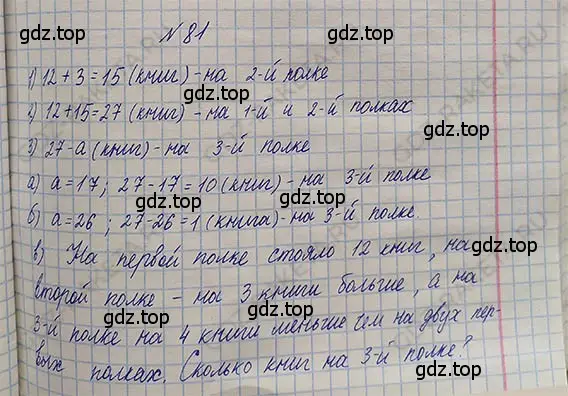 № 81
1) 12 + 3 = 15 (книг) - на 2-й полке
2) 12 + 15 = 27 (книг) - на 1-й и 2-й полках
3) 27 - а (книг) - на 3-й полке
а) а = 17; 27 - 17 = 10 (книг) - на 3-й полке
б) а = 26; 27 - 26 = 1 (книга) - на 3-й полке.
в) На первой полке стояло 12 книг, на
второй полке - на 3 книги больше, а на
3-й полке на 4 книги меньше чем на двух пер-
вых полках. Сколько книг на 3-й полке?
gdz.top
gdz.top
gdz.top
gdz.top
gdz.top
gdz.top
gdz.top
gdz.top
gdz.top
gdz.top